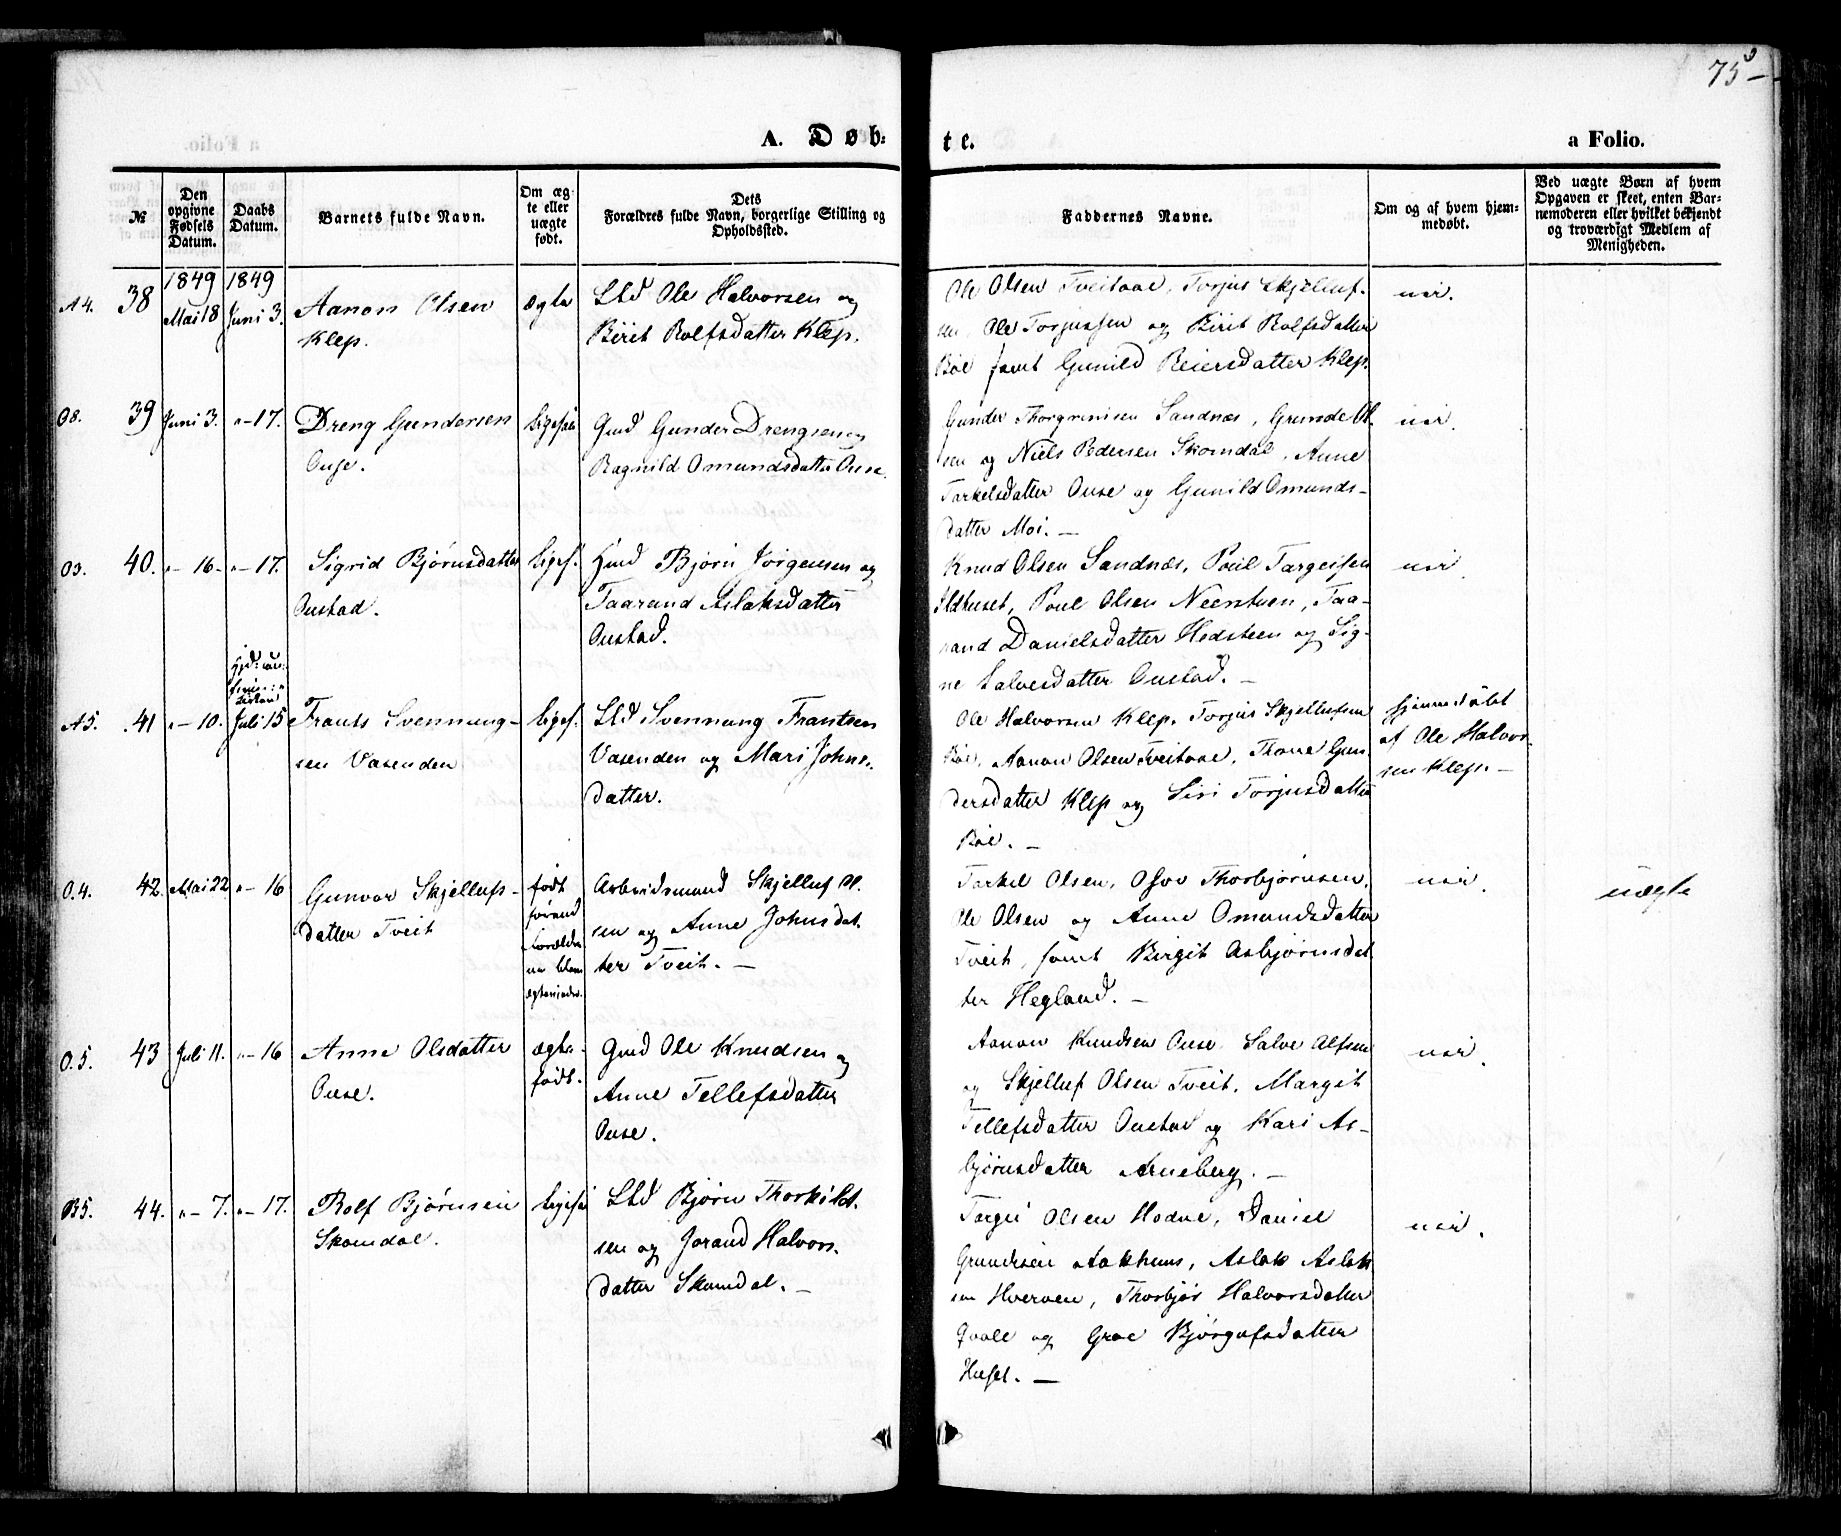 75
A. Døb:
te.
a Folio.
№
Den
opgivne
Fødsels
Datum.
Daabs
Datum.
Barnets fulde Navn.
Om æg-
te eller
uægte
født.
Dets
Forældres fulde Navn, borgerlige Stilling og
Opholdssted.
Faddernes Navne.
Om og af hvem hjem-
medøbt.
Ved uægte Børn af hvem
Opgaven er skeet, enten Bar-
nemoderen eller hvilket bekjendt
og troværdigt Medlem af
Menigheden.
A4.
38
1849
Mai 18
1849
Juni 3.
Aanon Olsen
Klep.
ægte
Lld Ole Halvorsen og
Birit Rolfsdatter Klep.
Ole Olsen Tveitaae, Torjus Skjelluf-
sen, Ole Torjussen og Birit Rolfsdatter
Böe samt Gunild Reiersdatter Klep.
nei.
O8.
39
Juni 3.
"-17.
Dreng Gundersen
Ouse.
ligesaa
Gmd Gunder Drengsen og
Ragnild Omundsdatter Ouse.
Gunder Thorgrimsen Sandnæs, Grunde Ol-
sen og Niels Pedersen Skomdal, Anne
Tarkelsdatter Ouse og Gunild Omunds-
datter Moi. -
nei.
O3.
40.
"-16-
"-17.
Sigrid Bjørnsdatter
Oustad.
liges.
Hmd Bjørn Jörgensen og
Taarand Aslaksdatter
Oustad.
Knud Olsen Sandnæs, Poul Targeisen
Ildhuset, Poul Olsen Neerstuen, Taa-
rand Danielsdatter Hedsteen og Sig-
ne Salvesdatter Oustad. -
nei.
A5.
41
"-10.
Juli 15
Frants Svennung-
sen Vasenden
ligef.
Lld Svennung Frantsen
Vasenden og Mari Johns-
datter.
Ole Halvorsen Klep, Torjus Skjellufsen
Böe, Aanon Olsen Tveitaae, Thone Gun-
dersdatter Klep og Siri Torjusdatter
Böe. -
hjemmedöbt
af Ole Halvor-
sen Klep. -
O.4.
42.
Mai 22
"-16
Gunvor Skjellufs-
datter Tveit
født
förend
Forældre
ne bleve
Arbeidsmand Skjelluf Ol-
sen og Anne Johnsdat-
ter Tveit. -
Tarkel Olsen, Osov Thorbjørnsen,
Ole Olsen og Anne Omundsdatter
Tveit, samt Birgit Asbjørnsdat-
ter Hegland. -
nei.
uægte
O.5.
43
Juli 11.
"-16
Anne Olsdatter
Ouse.
ægte-
født.
Gmd Ole Knudsen og
Anne Tellefsdatter
Ouse.
Aanon Knudsen Ouse, Salve Alfsen
og Skjelluf Olsen Tveit, Margit
Tellefsdatter Oustad og Kari As-
bjørnsdatter Arneberg. -
nei.
B5.
44.
"-7.
"-17.
Rolf Bjørnsen
Skomdal.
ligesa
Lld Bjørn Thorkild-
sen og Jorand Halvors-
datter Skomdal. -
Targei Olsen Hodne, Daniel
Grundesen Aakhuus, Aslak Aslak
sen Hverven, Thorbjør Halvorsdatter
Qvale og Groe Bjørgufsdatter
Huset. -
nei.